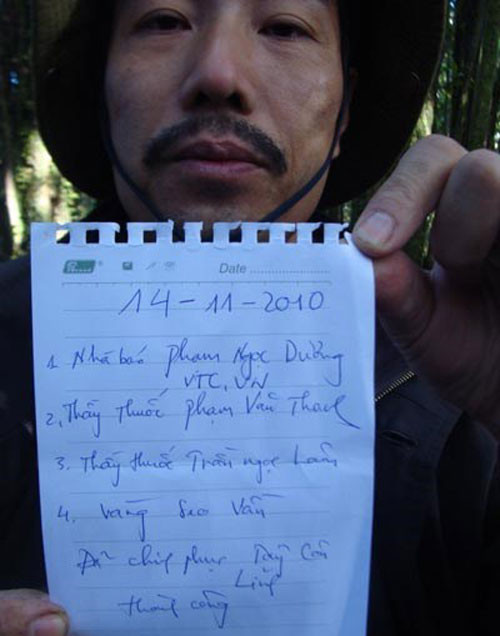 Date
14-11-2010
1. Nhà báo Phạm Ngọc Dương
VTC.VN
2. Thầy thuốc Phạm Văn Thạch
3. Thầy thuốc Trần Ngọc Lâm
4. Vàng Seo Vần
Đã chinh phục Tây Côn
Lĩnh
thành công